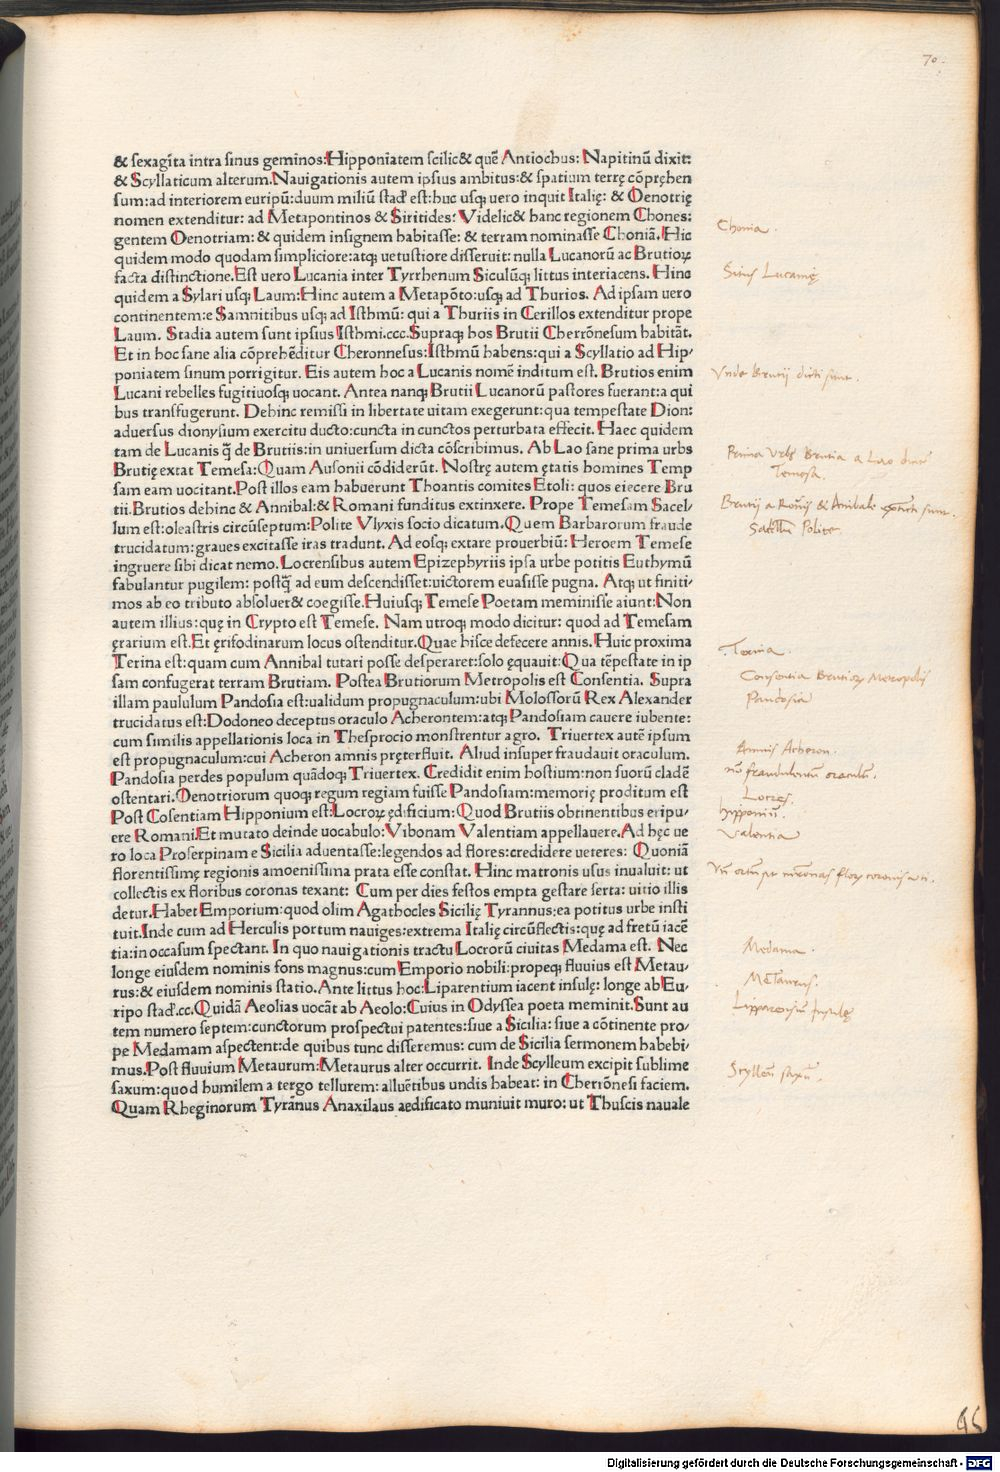 70.
& sexagīta intra sinus geminos: Hipponiatem scilic& quē Antiochus: Napitinū dixit:
& Scyllaticum alterum. Nauigationis autem ipsius ambitus: & spatium terrę cōpręhen
sum: ad interiorem euripū: duum miliū stad' est: huc usq; uero inquit Italię: & Oenotrię
nomen extenditur: ad Metapontinos & Siritides: Videlic& hanc regionem Chones:
gentem Oenotriam: & quidem insignem habitasse: & terram nominasse Choniā. Hic
quidem modo quodam simpliciore: atq; uetustiore disseruit: nulla Lucanorū ac Brutioꝝ
facta distinctione. Est uero Lucania inter Tyrrhenum Siculūq; littus interiacens. Hinc
quidem a Sylari usq; Laum: Hinc autem a Metapōto: usq; ad Thurios. Ad ipsam uero
continentem: e Samnitibus usq; ad Isthmū: qui a Thuriis in Cerillos extenditur prope
Laum. Stadia autem sunt ipsius Isthmi.ccc. Supraq; hos Brutii Cherrōnesum habitāt.
Et in hoc sane alia cōprehēditur Cheronnesus: Isthmū habens: qui a Scyllatio ad Hip-
poniatem sinum porrigitur. Eis autem hoc a Lucanis nomē inditum est. Brutios enim
Lucani rebelles fugitiuosq; uocant. Antea nanq; Brutii Lucanorū pastores fuerant: a qui
bus transfugerunt. Dehinc remissi in libertate uitam exegerunt: qua tempestate Dion:
aduersus dionysium exercitu ducto: cuncta in cunctos perturbata effecit. Haec quidem
tam de Lucanis q̄ de Brutiis: in uniuersum dicta cōscribimus. Ab Lao sane prima urbs
Brutię extat Temesa: Quam Ausonii cōdiderūt. Nostrę autem ętatis homines Temp
sam eam uocitant. Post illos eam habuerunt Thoantis comites Etoli: quos eiecere Bru
tii. Brutios dehinc & Annibal: & Romani funditus extinxere. Prope Temesam Sacel/
lum est: oleastris circūseptum: Polite Vlyxis socio dicatum. Quem Barbarorum fraude
trucidatum: graues excitasse iras tradunt. Ad eosq; extare prouerbiū: Heroem Temese
ingruere sibi dicat nemo. Locrensibus autem Epizephyriis ipsa urbe potitis Euthymū
fabulantur pugilem: postq̄ ad eum descendisset: uictorem euasisse pugna. Atq; ut finiti/
mos ab eo tributo absoluer& coegisse. Huiusq; Temese Poetam meminisse aiunt: Non
autem illius: quę in Crypto est Temese. Nam utroq; modo dicitur: quod ad Temesam
ęrarium est. Et ęrifodinarum locus ostenditur. Quae hisce defecere annis. Huic proxima
Terina est: quam cum Annibal tutari posse desperaret: solo ęquauit: Qua tēpestate in ip
sam confugerat terram Brutiam. Postea Brutiorum Metropolis est Consentia. Supra
illam paululum Pandosia est: ualidum propugnaculum: ubi Molossorū Rex Alexander
trucidatus est: Dodoneo deceptus oraculo Acherontem: atq; Pandosiam cauere iubente:
cum similis appellationis loca in Thesprocio monstrentur agro. Triuertex autē ipsum
est propugnaculum: cui Acheron amnis pręterfluit. Aliud insuper fraudauit oraculum.
Pandosia perdes populum quādoq; Triuertex. Credidit enim hostium: non suorū cladē
ostentari. Oenotriorum quoq; regum regiam fuisse Pandosiam: memorię proditum est
Post Cosentiam Hipponium est: Locroꝝ ędificium: Quod Brutiis obtinentibus eripu/
ere Romani. Et mutato deinde uocabulo: Vibonam Valentiam appellauere. Ad hęc ue
ro loca Proserpinam e Sicilia aduentasse: legendos ad flores: credidere ueteres: Quoniā
florentissimę regionis amoenissima prata esse constat. Hinc matronis usus inualuit: ut
collectis ex floribus coronas texant: Cum per dies festos empta gestare serta: uitio illis
detur. Habet Emporium: quod olim Agathocles Sicilię Tyrannus: ea potitus urbe insti
tuit. Inde cum ad Herculis portum nauiges: extrema Italię circūflectis: quę ad fretū iacē
tia: in occasum spectant. In quo nauigationis tractu Locrorū ciuitas Medama est. Nec
longe eiusdem nominis fons magnus: cum Emporio nobili: propeq; fluuius est Metau/
rus: & eiusdem nominis statio. Ante littus hoc: Liparentium iacent insulę: longe ab Eu/
ripo stad'.cc. Quidā Aeolias uocāt ab Aeolo: Cuius in Odyssea poeta meminit. Sunt au
tem numero septem: cunctorum prospectui patentes: siue a Sicilia: siue a cōtinente pro/
pe Medamam aspectent: de quibus tunc disseremus: cum de Sicilia sermonem habebi/
mus. Post fluuium Metaurum: Metaurus alter occurrit. Inde Scylleum excipit sublime
saxum: quod humilem a tergo tellurem: alluētibus undis habeat: in Cherrōnesi faciem.
Quam Rheginorum Tyrānus Anaxilaus aedificato muniuit muro: ut Thuscis nauale
Chonia.
Situs Lucanię
Vnde Brutij dicti sunt.
Prima Vrbs Brutia a Lao
Temesa.
Brutij a Romis & Anibale extincti sunt.
Sacellū Polite
Terina.
Consentia Brutioꝝ Metropolis
Pandosia
Amnis Acheron.
oraculū.
Locres.
hipponiū.
Valentia
Medama.
Metaurus.
Lipparensiū Insulę
Scylleū saxū.
Digitalisierung gefördert durch die Deutsche Forschungsgemeinschaft - DFG